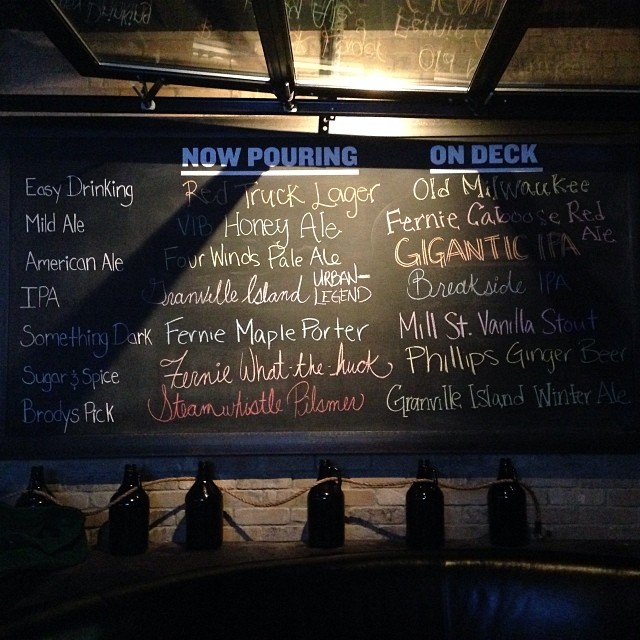 NOW POURING ON DECK
Easy Drinking Red Truck Lager Old Milwaukee
Mild Ale VIB Honey Ale Fernie Caboose Red Ale
American Ale Four Winds Pale Ale GIGANTIC IPA
IPA Granville Island URBAN-LEGEND Breakside IPA
Something Dark Fernie Maple Porter Mill St. Vanilla Stout
Sugar & Spice Fernie What-the-huck Phillips Ginger Beer
Brodys Pick Steamwhistle Pilsner Granville Island Winter Ale